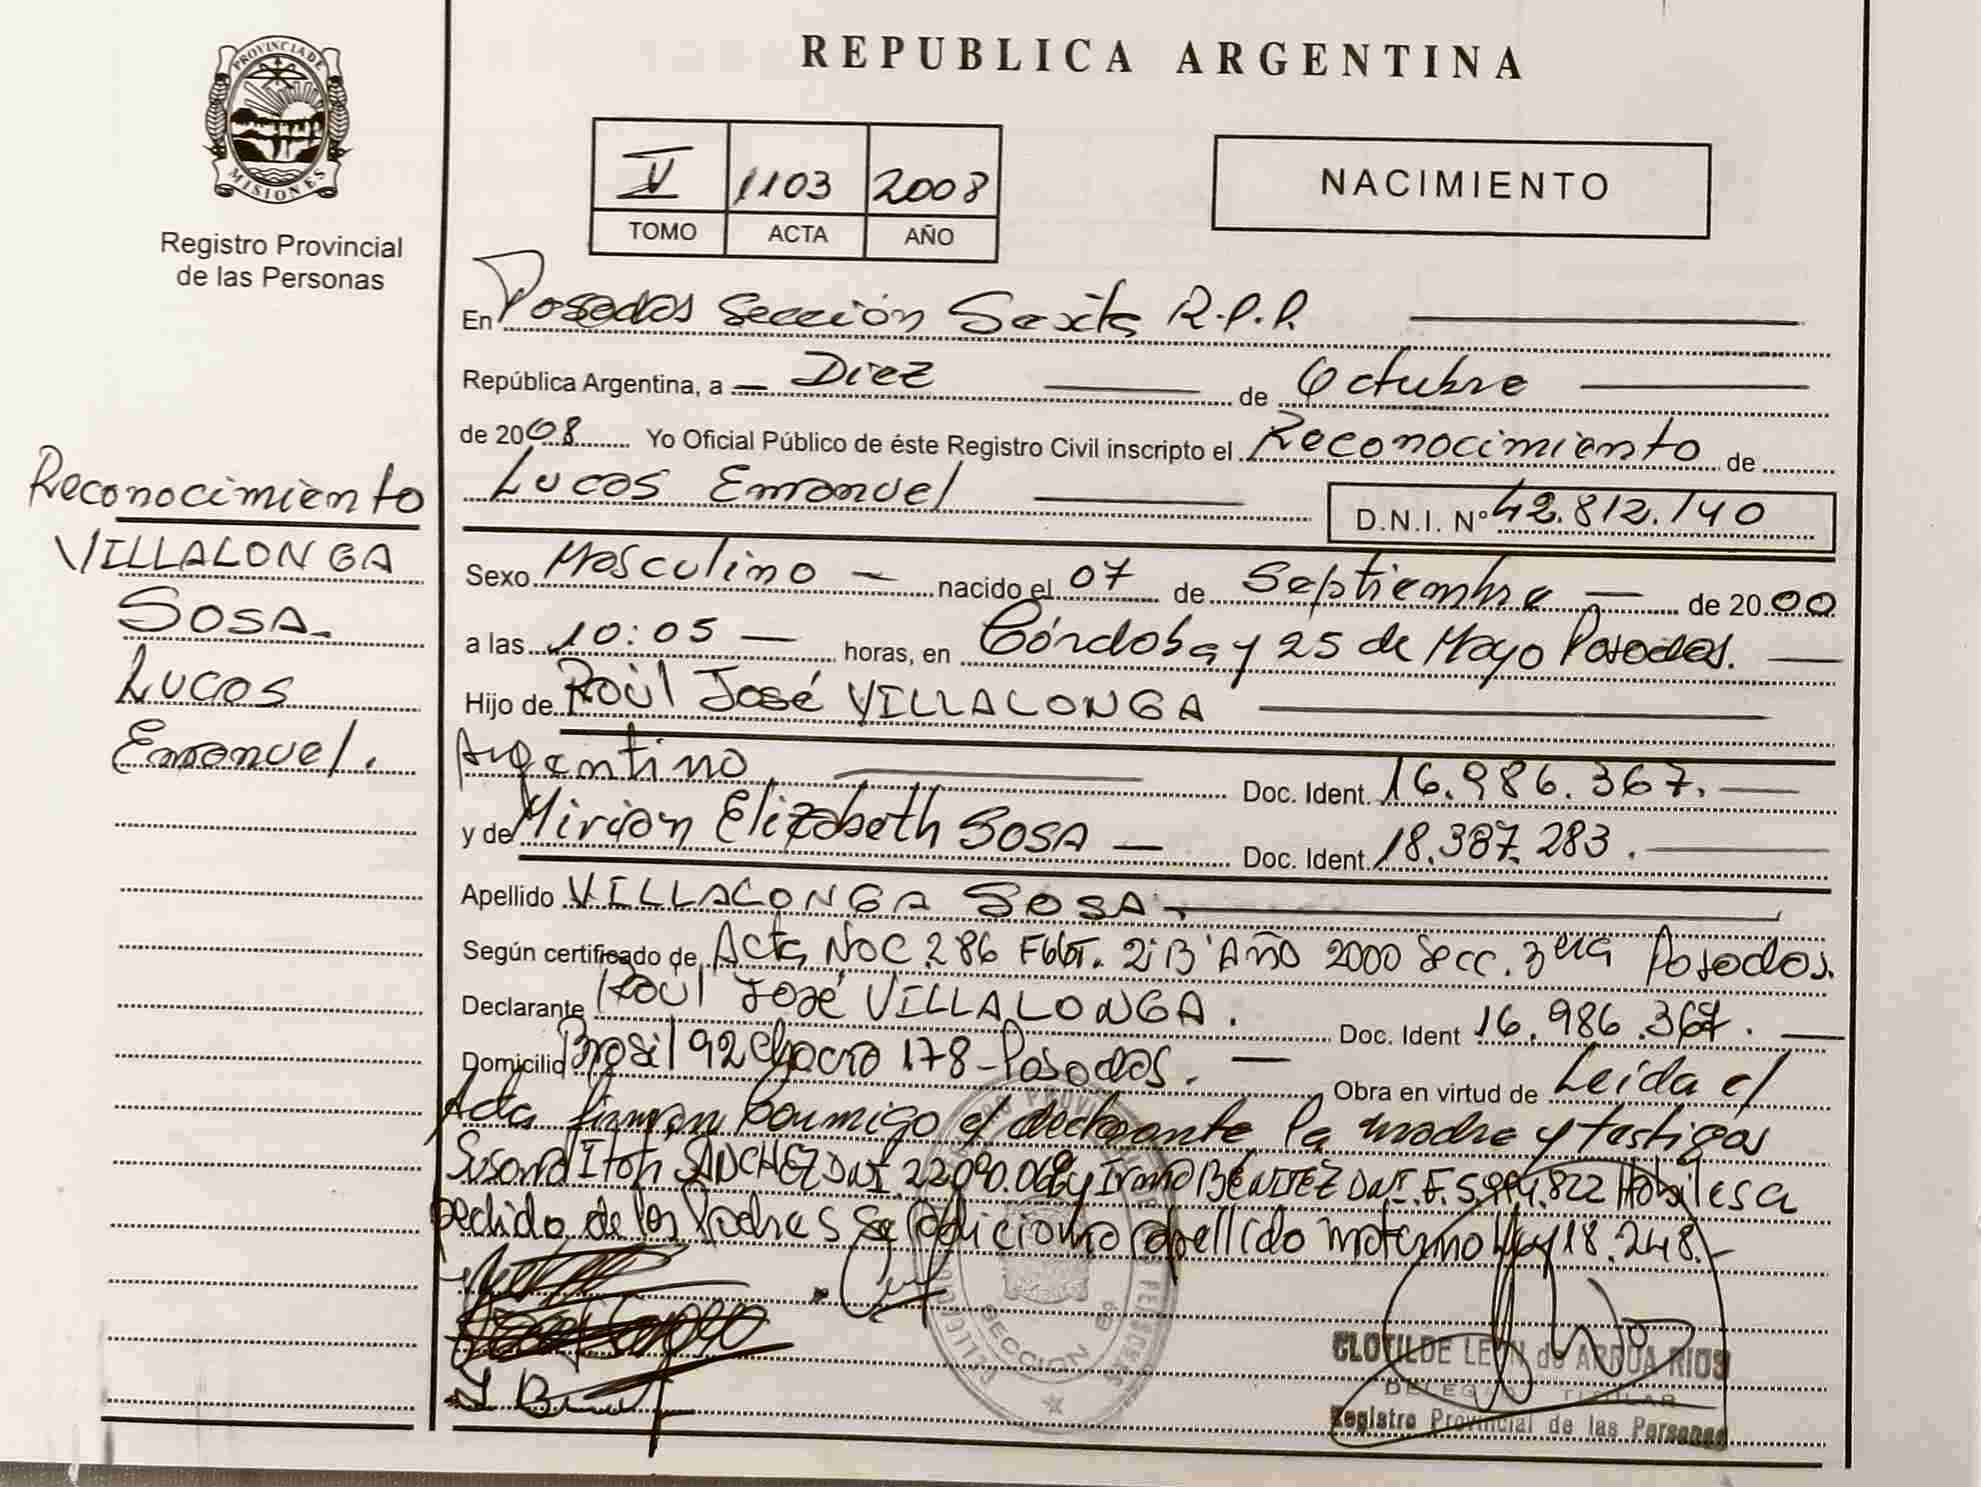 PROVINCIA DE
MISIONES
Registro Provincial
de las Personas
REPUBLICA ARGENTINA
V 1103 2008
TOMO ACTA AÑO
NACIMIENTO
En Posadas Sección Sexta R.P.P.
República Argentina, a Diez de Octubre
de 2008 Yo Oficial Público de éste Registro Civil inscripto el Reconocimiento de
Lucas Emanuel D.N.I. Nº 42.812.140
Sexo Masculino nacido el 07 de Septiembre de 2000
a las 10:05 horas, en Córdoba y 25 de Mayo Posadas.
Hijo de Raúl José VILLALONGA
Argentino Doc. Ident. 16.986.367.
y de Mirian Elizabeth SOSA Doc. Ident. 18.387.283.
Apellido VILLALONGA SOSA.
Según certificado de Acta Nº 286 Año 2000 Secc. 3era Posadas.
Declarante Raúl José VILLALONGA. Doc. Ident 16.986.367.
Domicilio Brasil 92 Chacra 178-Posadas. Obra en virtud de Leída el
Acta firman conmigo el declarante la madre y testigos
SANCHEZ DNI. y Irma BENITEZ DNI. F. Hábiles a
pedido de los Padres se adiciona apellido materno Ley 18.248.-
Reconocimiento
VILLALONGA
SOSA.
Lucas
Emanuel.
SECCION 6ª
CLOTILDE LEON de ARRUA RIOS
DELEGADA TITULAR
Registro Provincial de las Personas